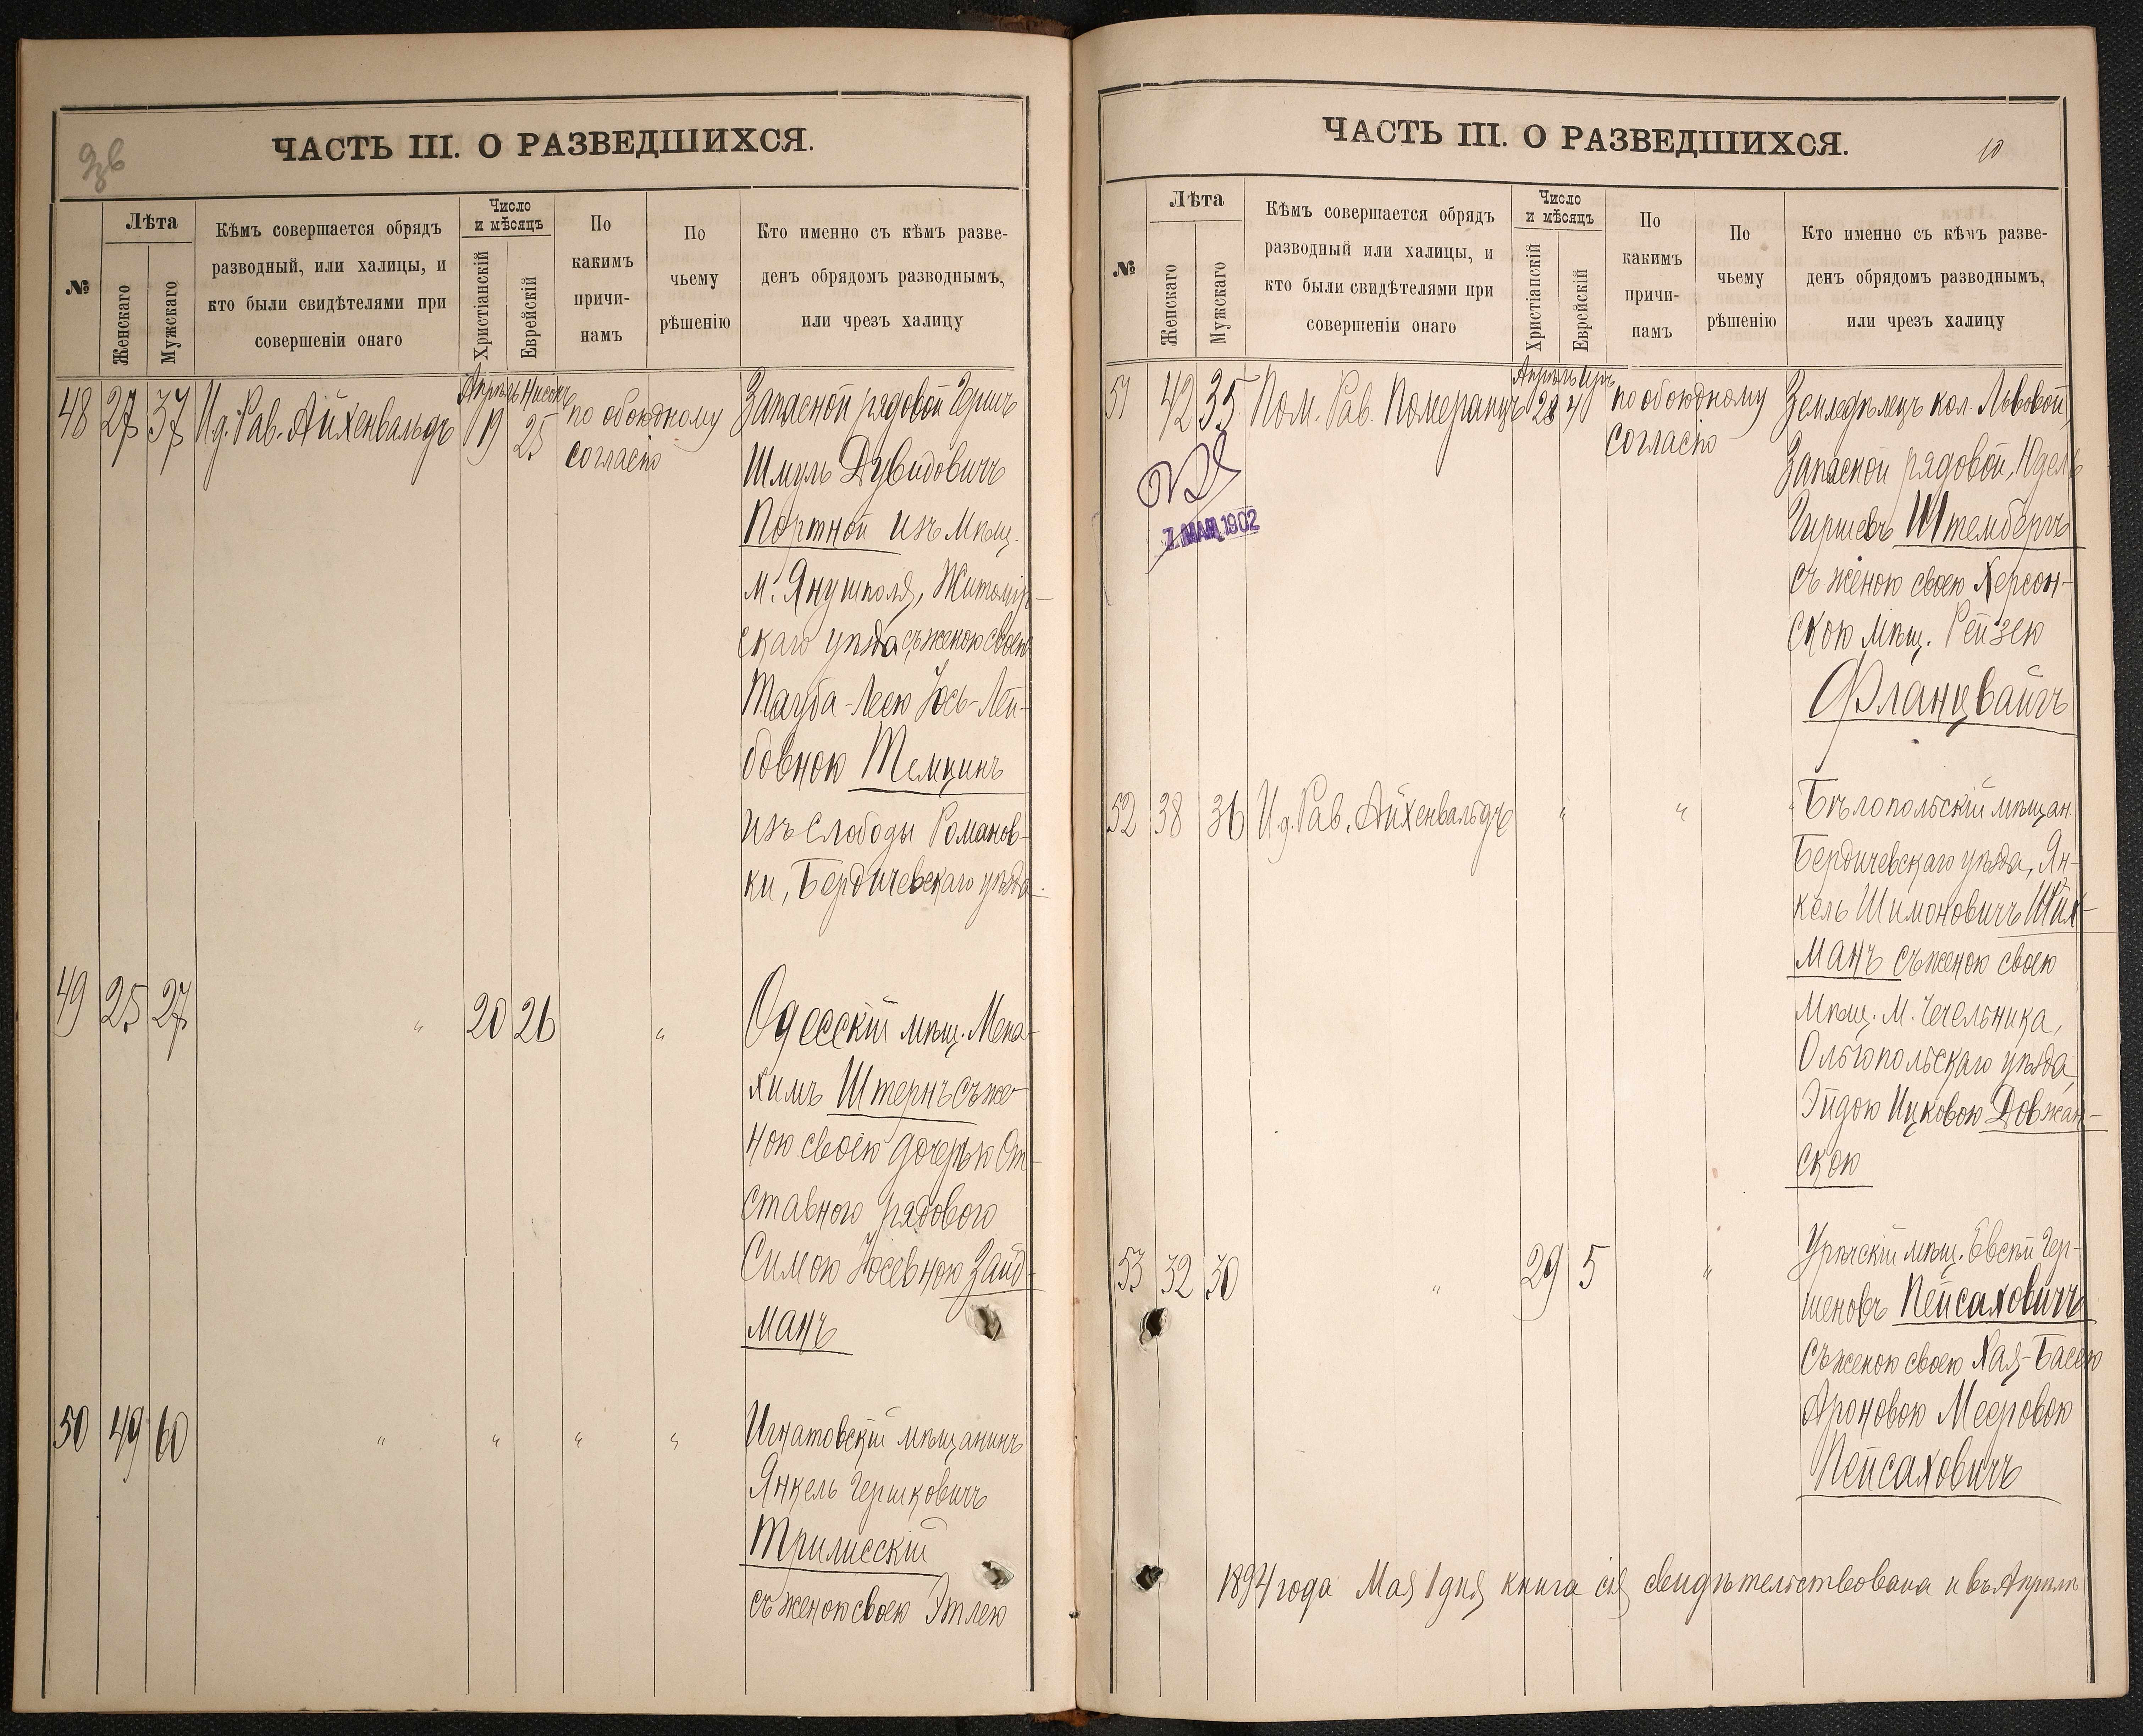 9об
ЧАСТЬ III. О РАЗВЕДШИХСЯ.
№
Лѣта
Женскаго
Мужскаго
Кѣмъ совершается обрядъ
разводный, или халицы, и
кто были свидѣтелями при
совершеніи онаго
Число
и мѣсяцъ
Христіанскій
Еврейскій
По
какимъ
причи-
намъ
По
чьему
рѣшенію
Кто именно съ кѣмъ разве-
денъ обрядомъ разводнымъ,
или чрезъ халицу
48 27 37 И.д. Рав. Айхенвальдъ
Апрѣль Нисонъ
19 25
по обоюдному
согласію
Запасной рядовой Гершъ
Шмуль Дувидовичъ
Портной изъ мѣщ.
м. Янушполя, Житомір-
скаго уѣзда съ женою своею
Тауба-Леею Іось-Лей-
бовною Темкинъ
изъ Слободы Романов-
ки, Бердичевскаго уѣзда
49 25 27 " 20 26 "
Одесскій мѣщ. Мена-
химъ Штернъ съ же-
ною своею дочерью От-
ставного рядового
Симою Іосевною Зайд-
манъ
50 49 60 " " " "
Игнатовскій мѣщанинъ
Янкель Гершковичъ
Трилисскій
съ женою своею Этлею
ЧАСТЬ III. О РАЗВЕДШИХСЯ.
10
№
Лѣта
Женскаго
Мужскаго
Кѣмъ совершается обрядъ
разводный или халицы, и
кто были свидѣтелями при
совершеніи онаго
Число
и мѣсяцъ
Христіанскій
Еврейскій
По
какимъ
причи-
намъ
По
чьему
рѣшенію
Кто именно съ кѣмъ разве-
денъ обрядомъ разводнымъ,
или чрезъ халицу
51 42 35 Пом. Рав. Померанцъ
Апрѣль Иръ
28 4
по обоюдному
согласію
7 МАЯ 1902
Земледѣлецъ кол. Львовой,
Запасной рядовой, Юдель
Гиршевъ Штембергъ
съ женою своею Херсон-
скою мѣщ. Рейзею
Фланцвайгъ
52 38 36 И.д. Рав. Айхенвальдъ " "
Бѣлопольскій мѣщан.
Бердичевскаго уѣзда, Ян-
кель Шимоновичъ
манъ съ женою своею
мѣщ. М. Чечельника,
Ольгопольскаго уѣзда,
Эйдою Ицковою Довжан-
скою
53 32 30 " 29 5 "
мѣщ. Евсей Гер-
шеновъ Пейсаховичъ
съ женою своею Хая-Басею
Ароновою Мееровою
Пейсаховичъ
1894 года Мая 1 дня книга сія свидѣтельствована и въ Апрѣлѣ